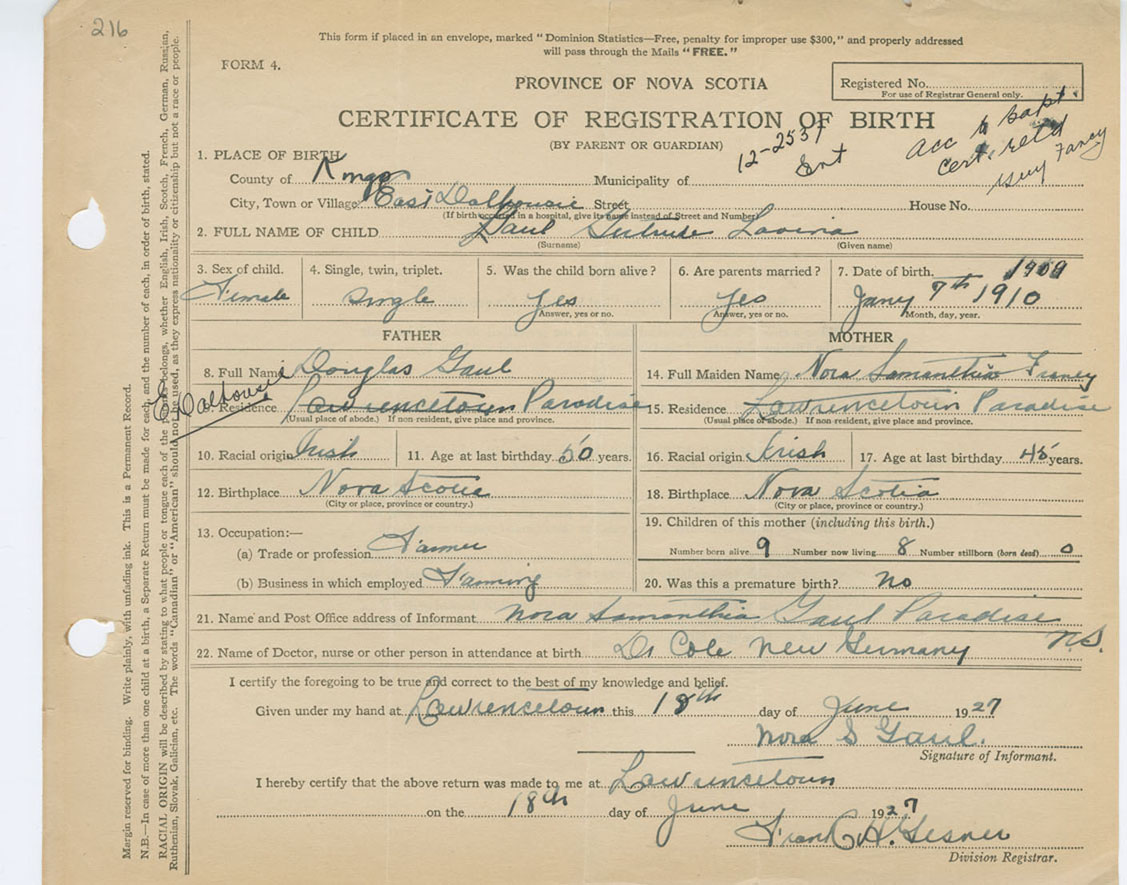 216
This form if placed in an envelope, marked "Dominion Statistics—Free, penalty for improper use $300," and properly addressed
will pass through the Mails "FREE."
FORM 4.
PROVINCE OF NOVA SCOTIA
Registered No.
For use of Registrar General only.
CERTIFICATE OF REGISTRATION OF BIRTH
(BY PARENT OR GUARDIAN)
12-2537
Ent
Acc to Bapt
Cert. retd
Guy Fancy
1. PLACE OF BIRTH
County of Kings Municipality of
City, Town or Village East Dalhousie Street House No.
(If birth occurred in a hospital, give its name instead of Street and Number)
2. FULL NAME OF CHILD Gaul Gertrude Lavinia
(Surname) (Given name)
3. Sex of child. 4. Single, twin, triplet. 5. Was the child born alive? 6. Are parents married? 7. Date of birth. 1909
Female Single Yes Yes Jany 7th 1910
Answer, yes or no. Answer, yes or no. Month, day, year.
FATHER MOTHER
8. Full Name Douglas Gaul 14. Full Maiden Name Nora Samantha Francy
E Dalhousie
9. Residence Lawrencetown Paradise 15. Residence Lawrencetown Paradise
(Usual place of abode.) If non resident, give place and province. (Usual place of abode.) If non resident, give place and province.
10. Racial origin Irish 11. Age at last birthday 50 years. 16. Racial origin Irish 17. Age at last birthday 45 years.
12. Birthplace Nova Scotia 18. Birthplace Nova Scotia
(City or place, province or country.) (City or place, province or country.)
13. Occupation:— 19. Children of this mother (including this birth.)
(a) Trade or profession Farmer Number born alive 9 Number now living 8 Number stillborn (born dead) 0
(b) Business in which employed Farming 20. Was this a premature birth? No
21. Name and Post Office address of Informant Nora Samanthia Gaul Paradise N.S.
22. Name of Doctor, nurse or other person in attendance at birth Dr Cole New Germany
I certify the foregoing to be true and correct to the best of my knowledge and belief.
Given under my hand at Lawrencetown this 18th day of June 1927
Nora S Gaul.
Signature of Informant.
I hereby certify that the above return was made to me at Lawrencetown
on the 18th day of June 1927
Frank H. Gesner
Division Registrar.
Margin reserved for binding. Write plainly, with unfading ink. This is a Permanent Record.
N.B.—In case of more than one child at a birth, a Separate Return must be made for each, and the number of each, in order of birth, stated.
RACIAL ORIGIN will be described by stating to what people or tongue each of the belongs, whether English, Irish, Scotch, French, German, Russian,
Ruthenian, Slovak, Galician, etc. The words "Canadian" or "American" should not be used, as they express nationality or citizenship but not a race or people.